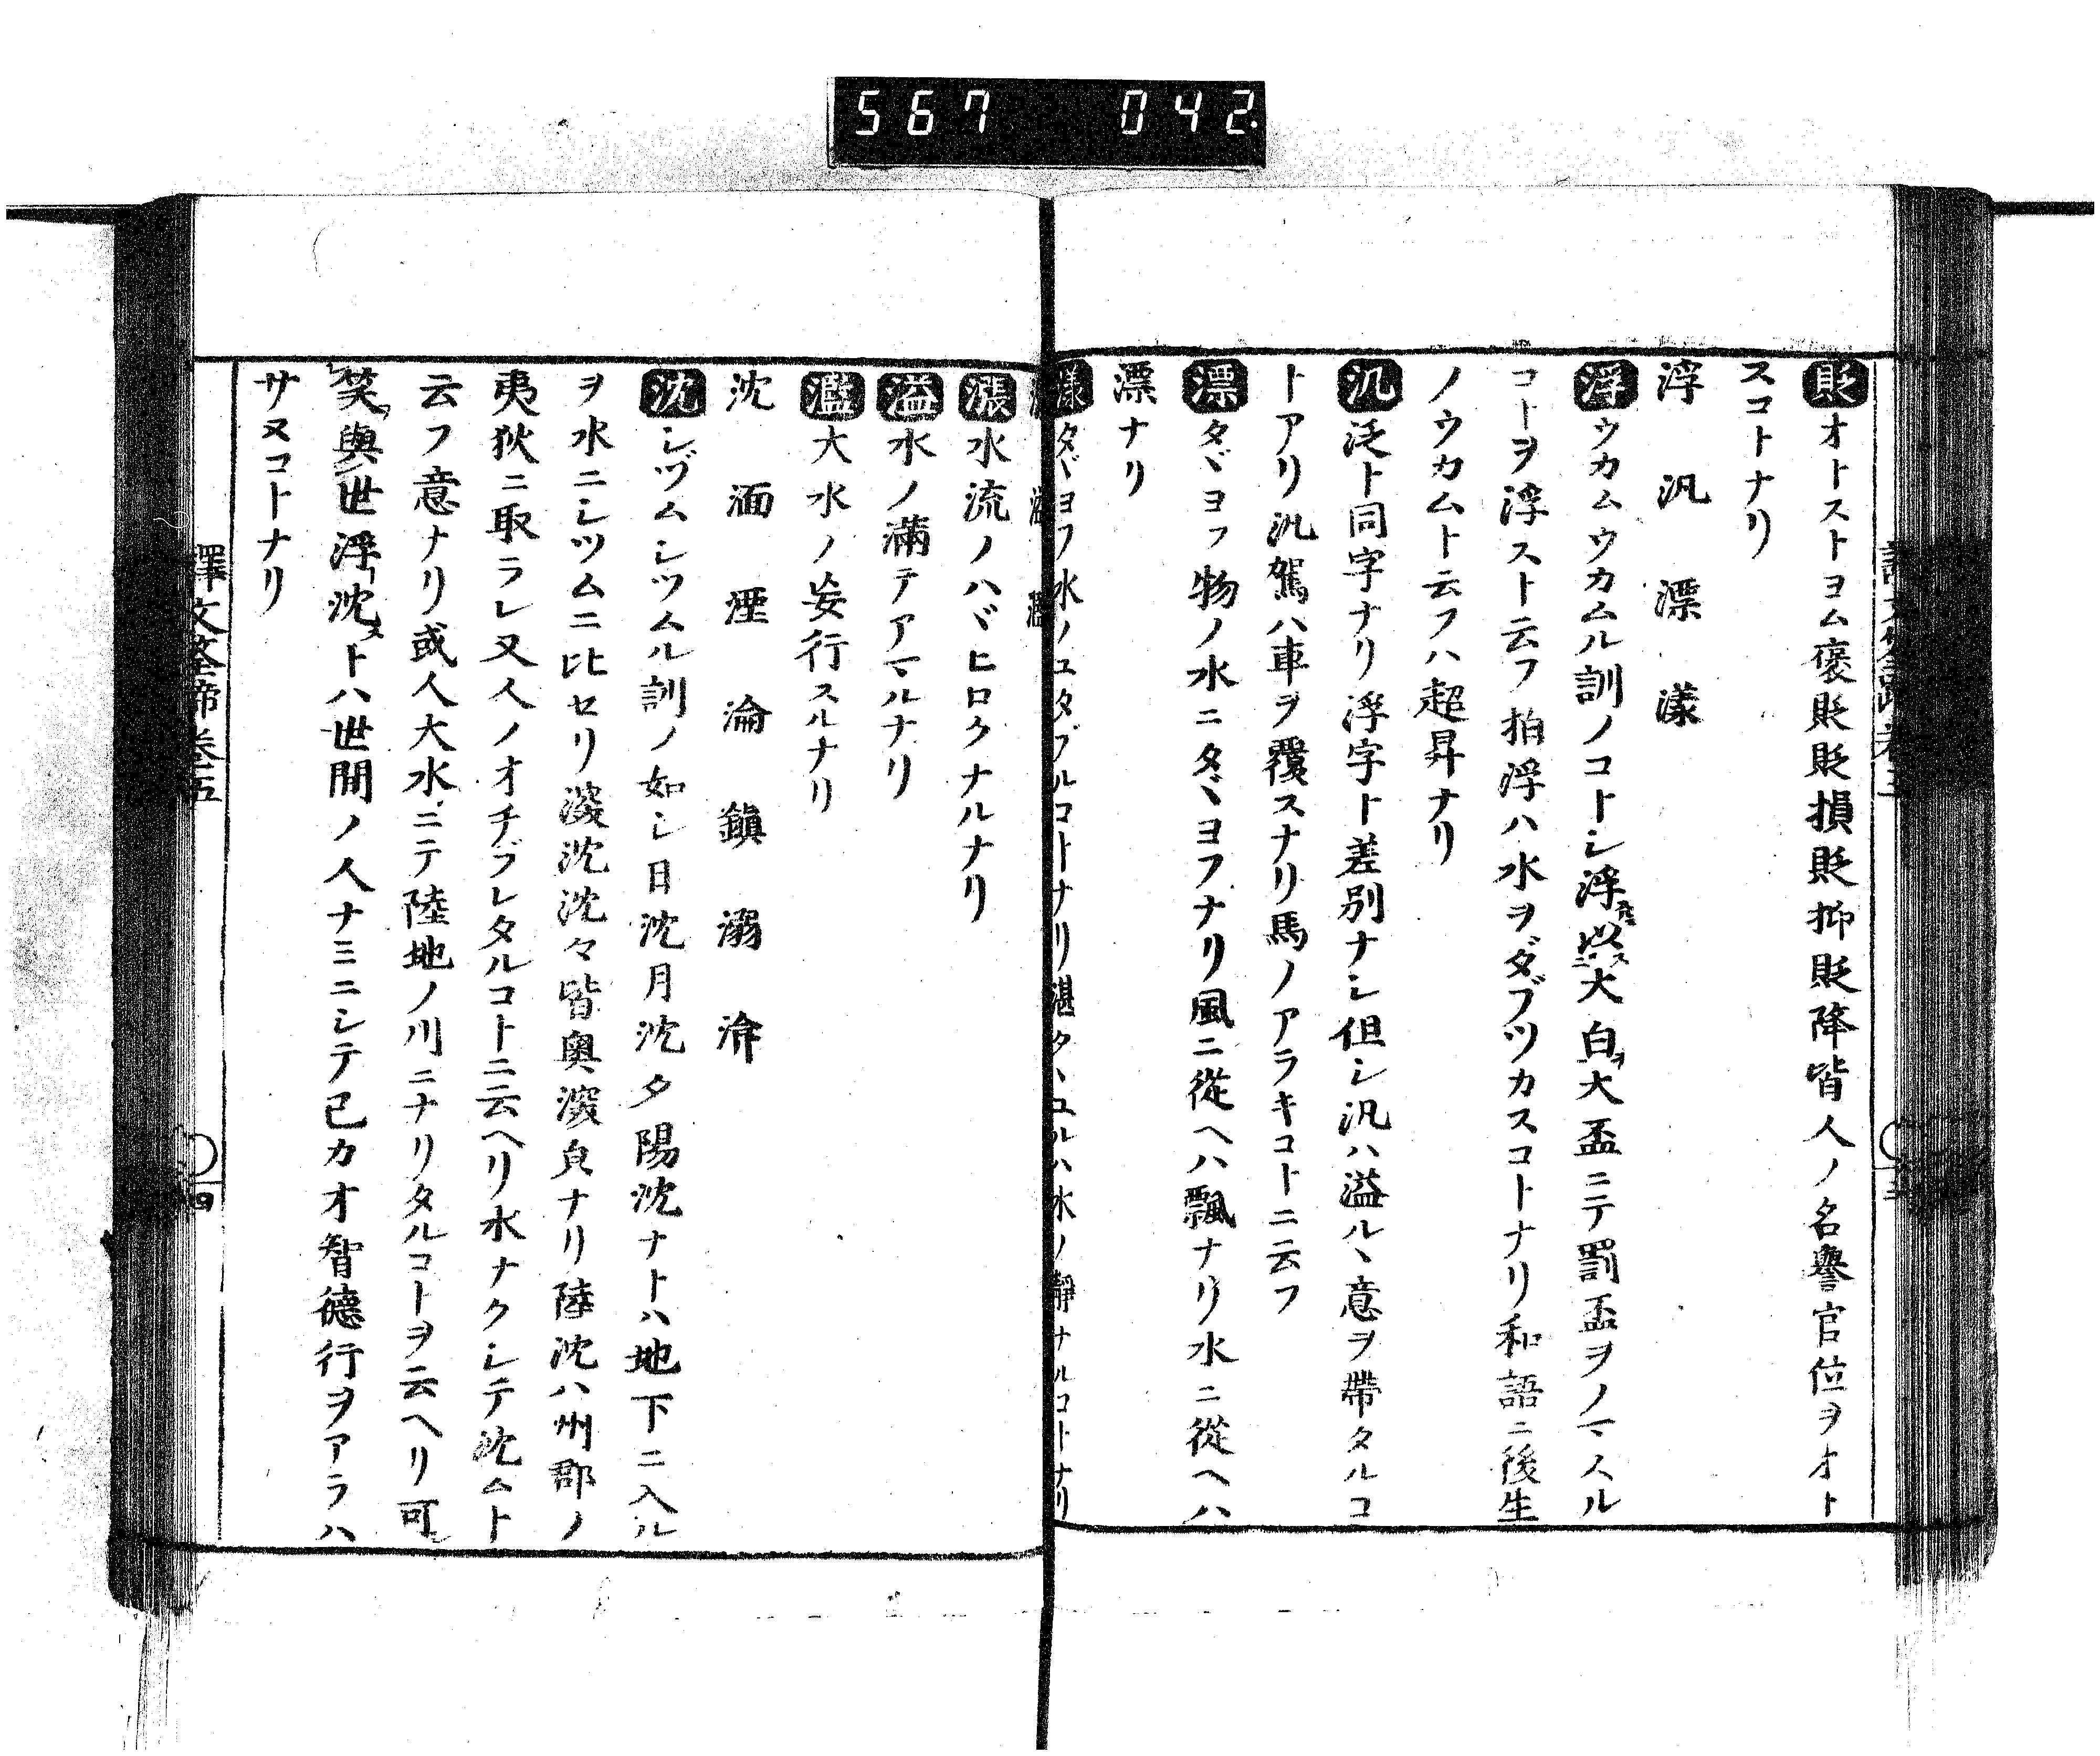 567 042
貶オトストヨム褒貶貶損貶抑貶降皆人ノ名譽官位ヲオト
スコトナリ
浮 汎 漂 漾
浮ウカムウカムル訓ノコトシ浮以大白大盃ニテ罰盃ヲノマスル
コトヲ浮スト云フ拍浮ハ水ヲダブツカスコトナリ和語ニ後生
ノウカムト云フハ超昇ナリ
汎泛ト同字ナリ浮字ト差別ナシ但シ汎ハ溢ルヽ意ヲ帶タルコ
トアリ汎駕ハ車ヲ覆スナリ馬ノアラキコトニ云フ
漂タヾヨフ物ノ水ニタヾヨフナリ風ニ從ヘハ飄ナリ水ニ從ヘハ
漂ナリ
漾タヾヨフ水ノユタブルコトナリ湛タヽユルハ水ノ靜ナルコトナリ
漲 溢 濫
漲水流ノハヾヒロクナルナリ
溢水ノ滿テアマルナリ
濫大水ノ妄行スルナリ
沈 湎 湮 淪 鎭 溺
沈シヅムシツムル訓ノ如シ日沈月沈夕陽沈ナトハ地下ニ入ル
ヲ水ニシツムニ比セリ深沈沈々皆奧深皃ナリ陸沈ハ州郡ノ
夷狄ニ取ラレ又人ノオチブレタルコトニ云ヘリ水ナクシテ沈ムト
云フ意ナリ或人大水ニテ陸地ノ川ニナリタルコトヲ云ヘリ可
笑與世浮沈ストハ世間ノ人ナミニシテ己カオ智德行ヲアラハ
サヌコトナリ
譯文筌蹄卷五 四